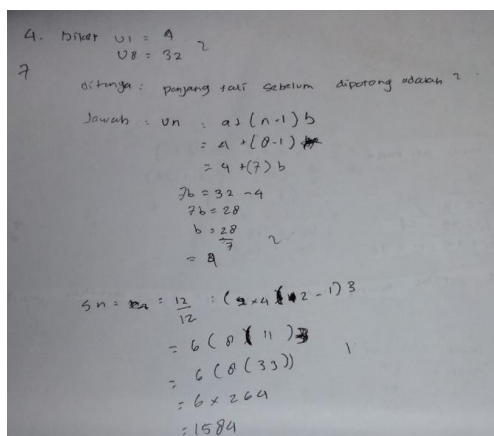 4. Diket U1 = 4
U8 = 32 2
7
ditanya: panjang tali sebelum dipotong adalah?
Jawab : Un : a+(n-1)b
= 4 +(8-1)
= 4 +(7) b
7b = 32 - 4
7b = 28
b = 28/7 2
= 4
Sn = = 12/12 : (2x4 ( 12 - 1) 3
= 6 ( 8 ( 11 ) 3
= 6 ( 8 ( 33)) 1
= 6 x 264
= 1584